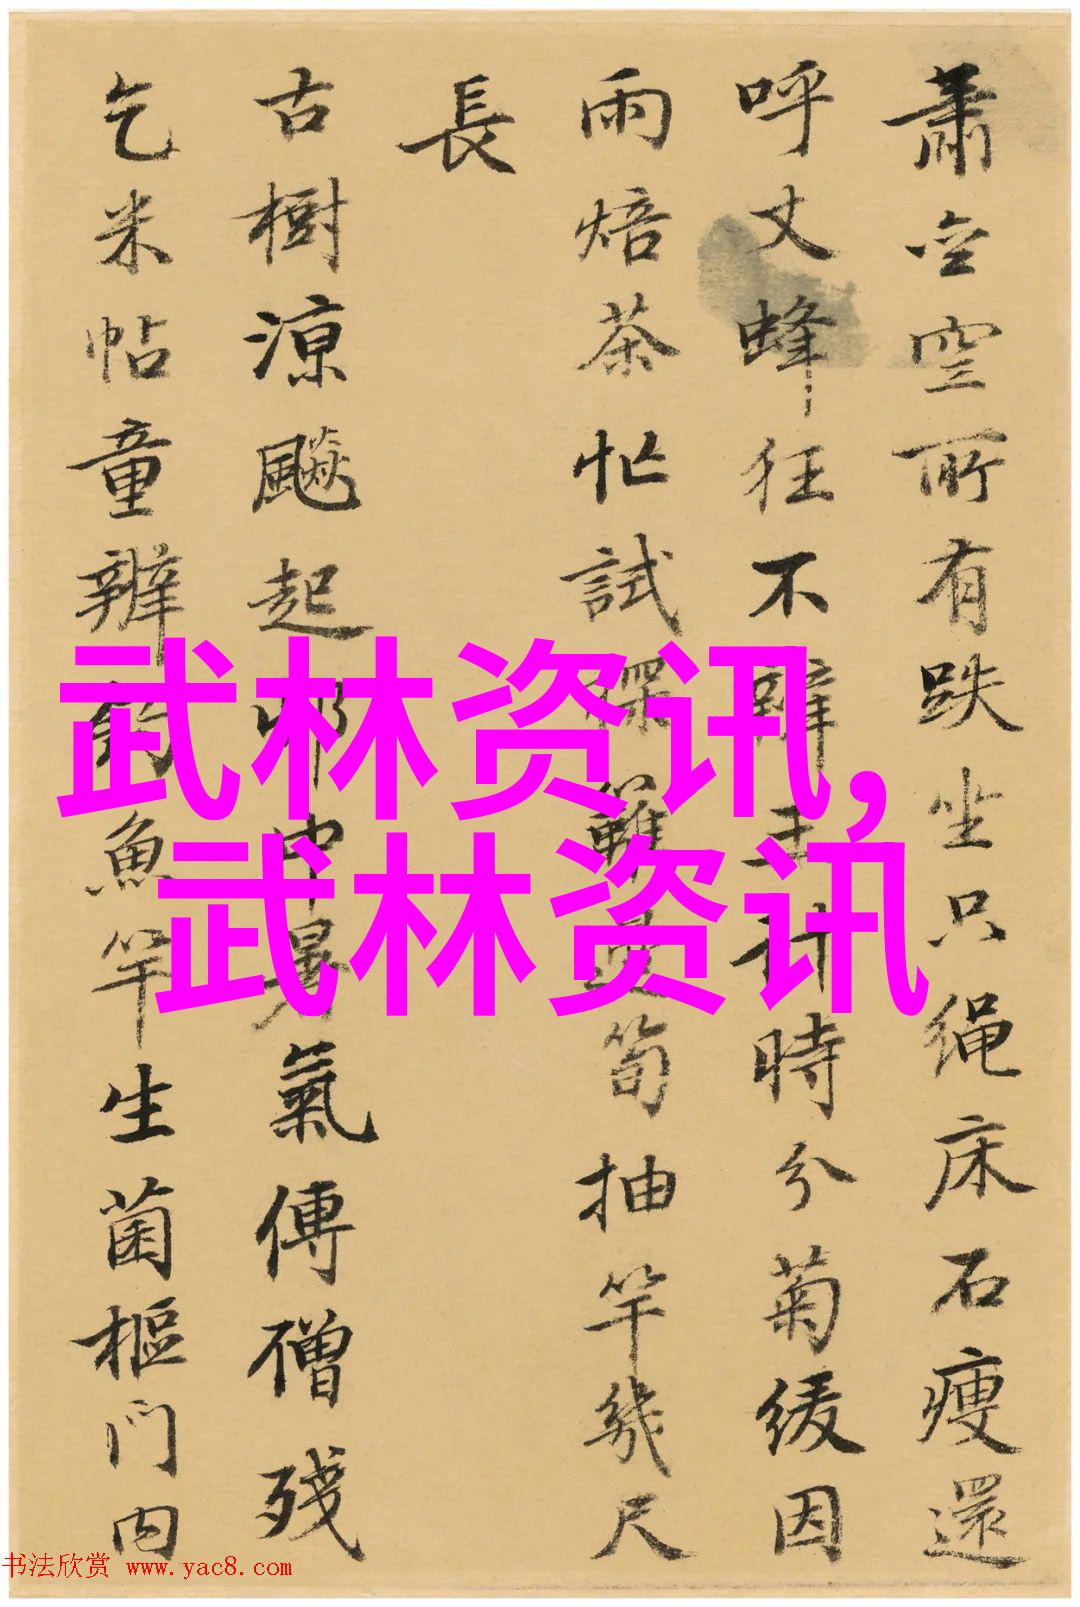 肅空所有跌坐只绳床石瘦還
呼丈蜂狂不主時分菊緩因
雨焙茶忙試筍抽竿幾尺
長
古樹涼飈起邨中暑氣傳僧殘
乞米帖童辨釣魚竿生菌樞門内
武林资讯,
武林资讯
书法欣赏 www.yac8.com